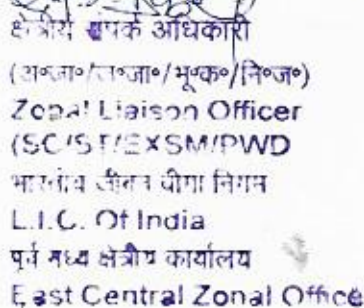 क्षेत्रीय संपर्क अधिकारी
(अ०जा०/ज०जा०/भू०क०/नि०ज०)
Zonal Liaison Officer
(SC/ST/EXSM/PWD
भारतीय जीवन बीमा निगम
L.I.C. Of India
पूर्व मध्य क्षेत्रीय कार्यालय
East Central Zonal Office